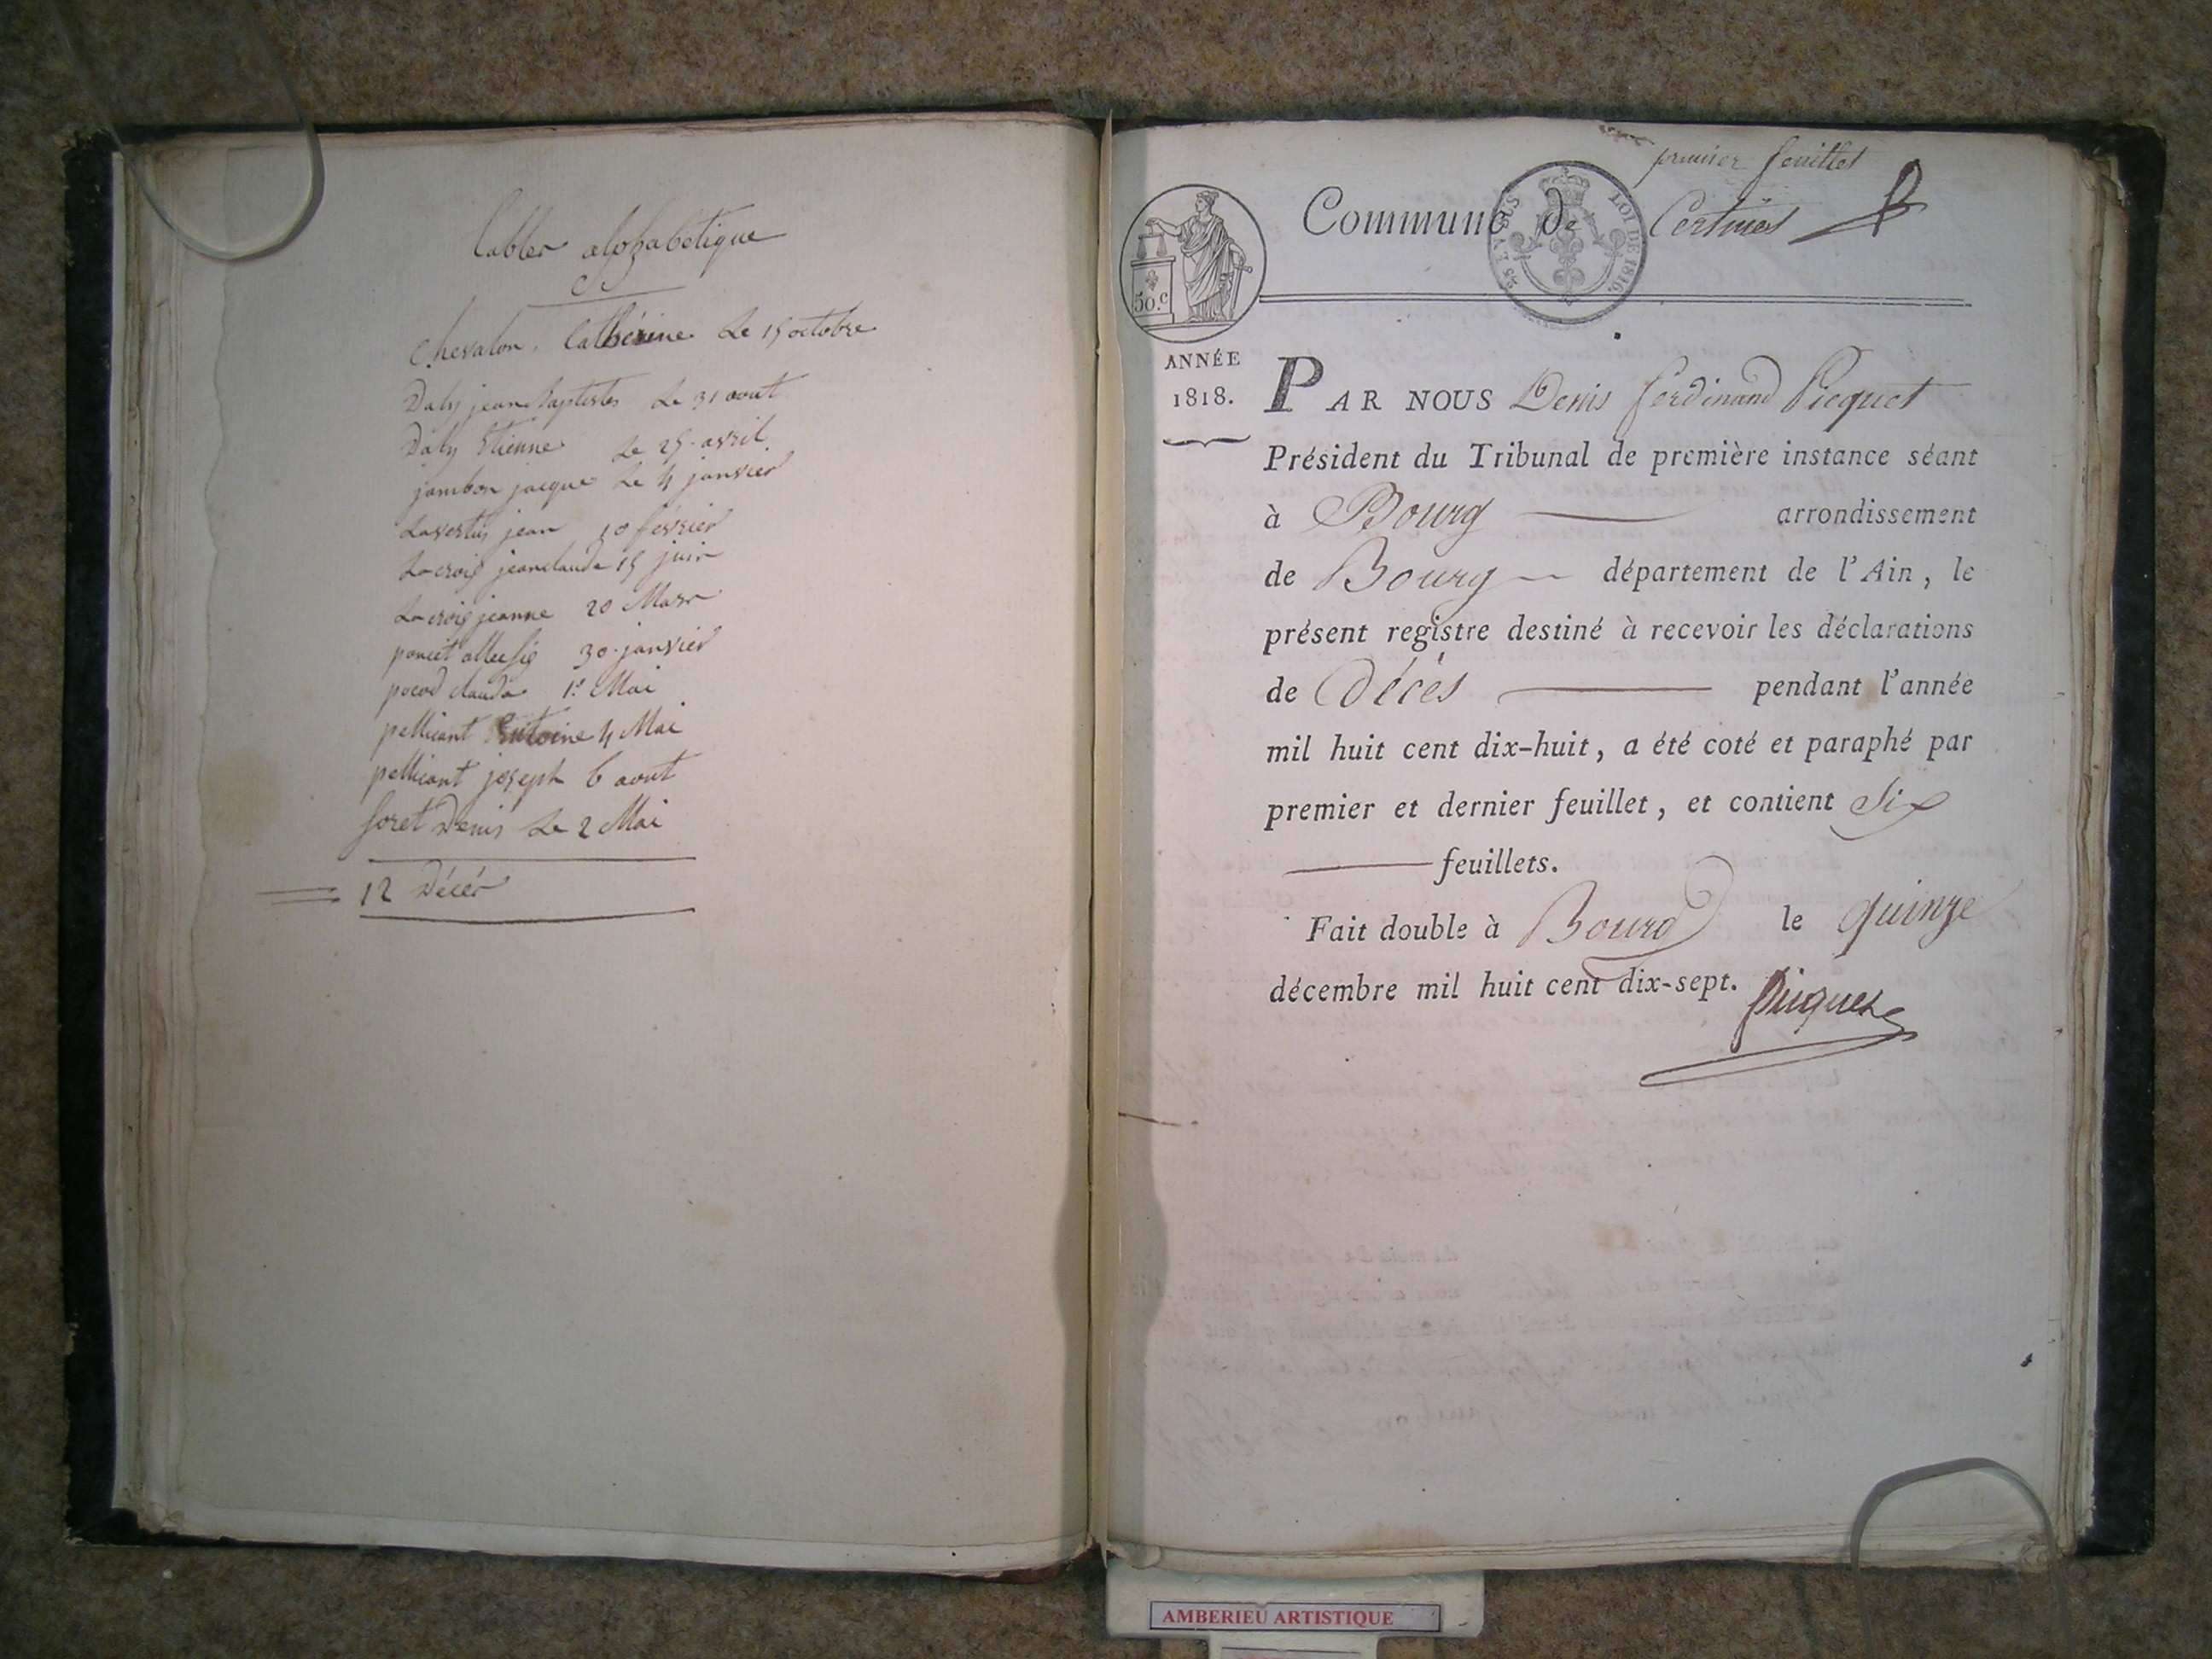 Tables alphabetique
Chevalon, Cathérine Le 15 octobre
Daly jean Baptistes Le 31 aout
Daly Etienne Le 25 avril
jambon jacque Le 4 janvier
Lavertus jean 10 février
Lacroix jeanclaude 15 juin
Lacroix jeanne 20 Mars
poncet 30 janvier
pocod claude 1er Mai
pellicant Antoine 4 Mai
pellicant joseph 6 aout
foret Denis Le 2 Mai
12 Décés
premier feuillet
Commune de Certines
LOI DE 1816.
50.c
ANNÉE
1818.
PAR NOUS Denis ferdinand Picquet
Président du Tribunal de première instance séant
à Bourg arrondissement
de Bourg département de l'Ain, le
présent registre destiné à recevoir les déclarations
de Décès pendant l'année
mil huit cent dix-huit, a été coté et paraphé par
premier et dernier feuillet, et contient Six
feuillets.
Fait double à Bourg le quinze
décembre mil huit cent dix-sept.
Picquet
AMBERIEU ARTISTIQUE